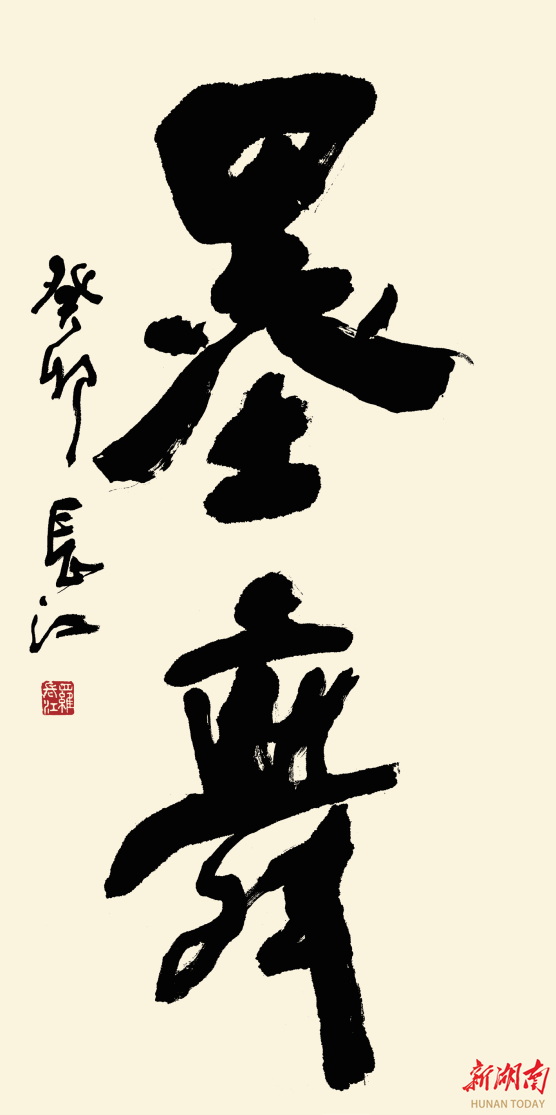 墨舞
癸卯 長江
羅長江
新湖南
HUNAN TODAY